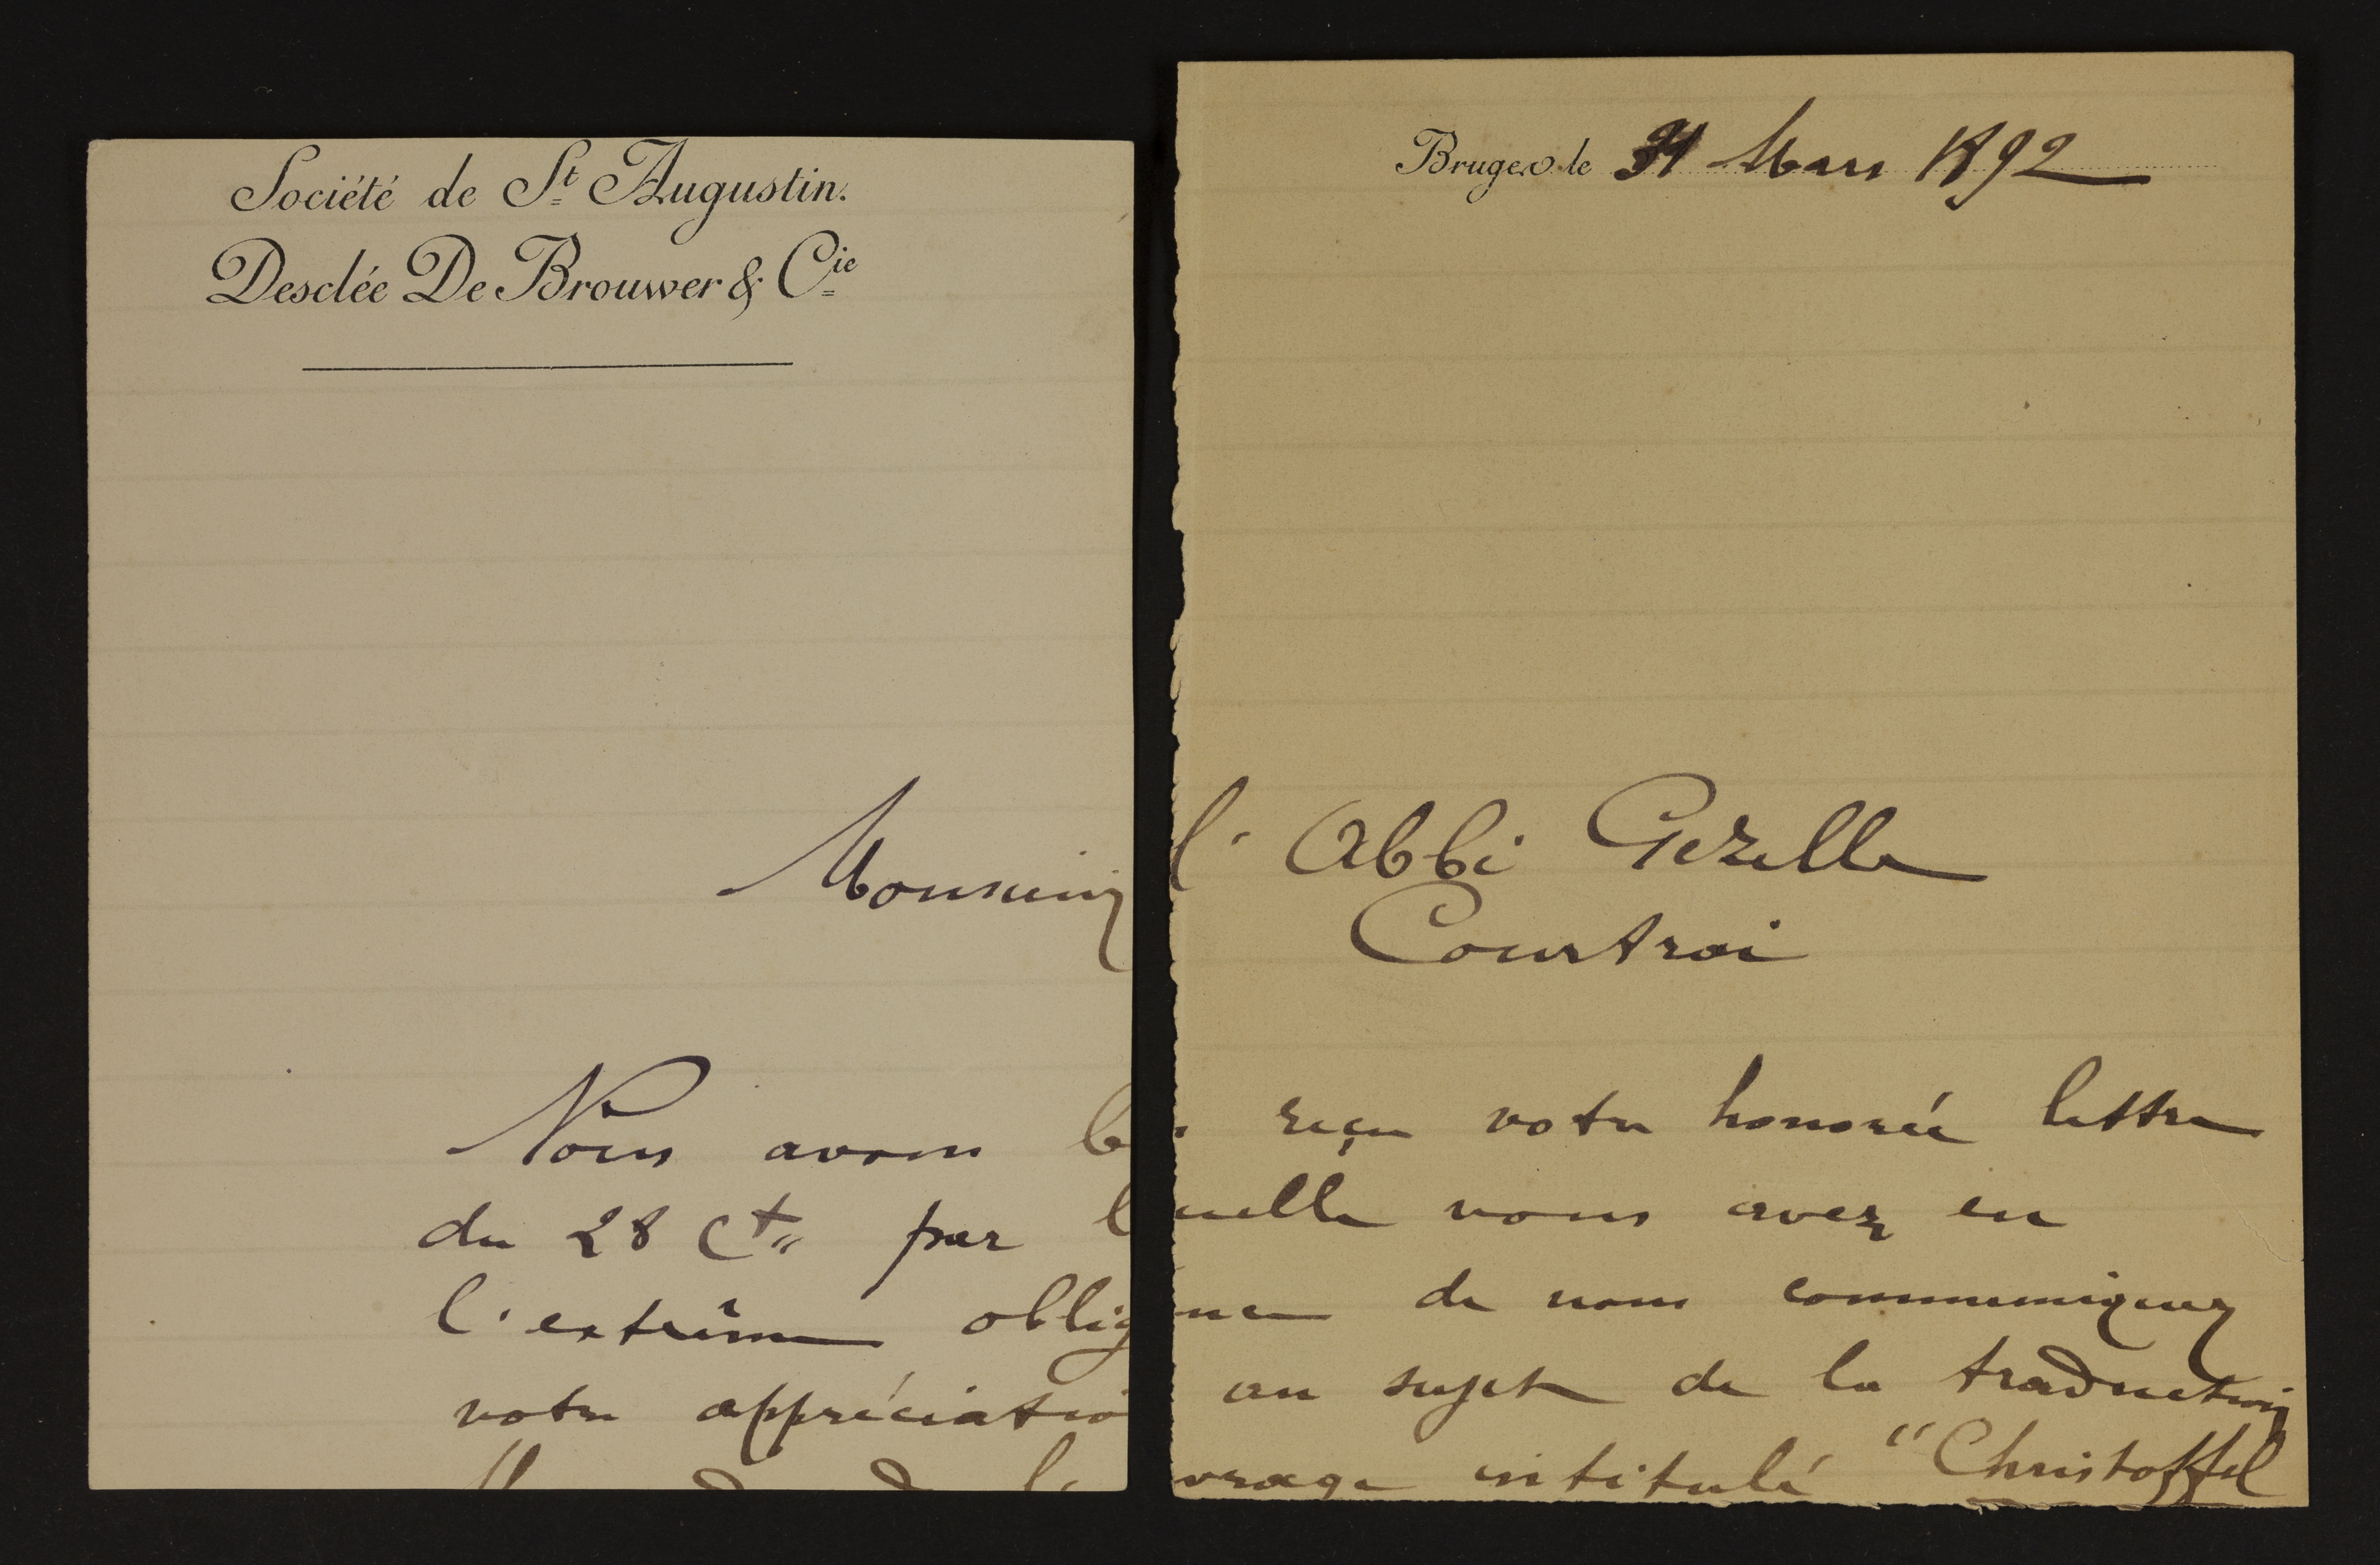 Société de St Augustin.
Desclée De Brouwer & Cie
Bruges le 31 Mars 1892
Monsieur l'Abbé Gezelle
Courtrai
Nous avons b reçu votre honorée lettre
du 28 Ct par l uelle vous avez eu
l'extrême oblig nce de nous communiquer
votre appréciatio au sujet de la traduction
vrage intitulé "Christoffel